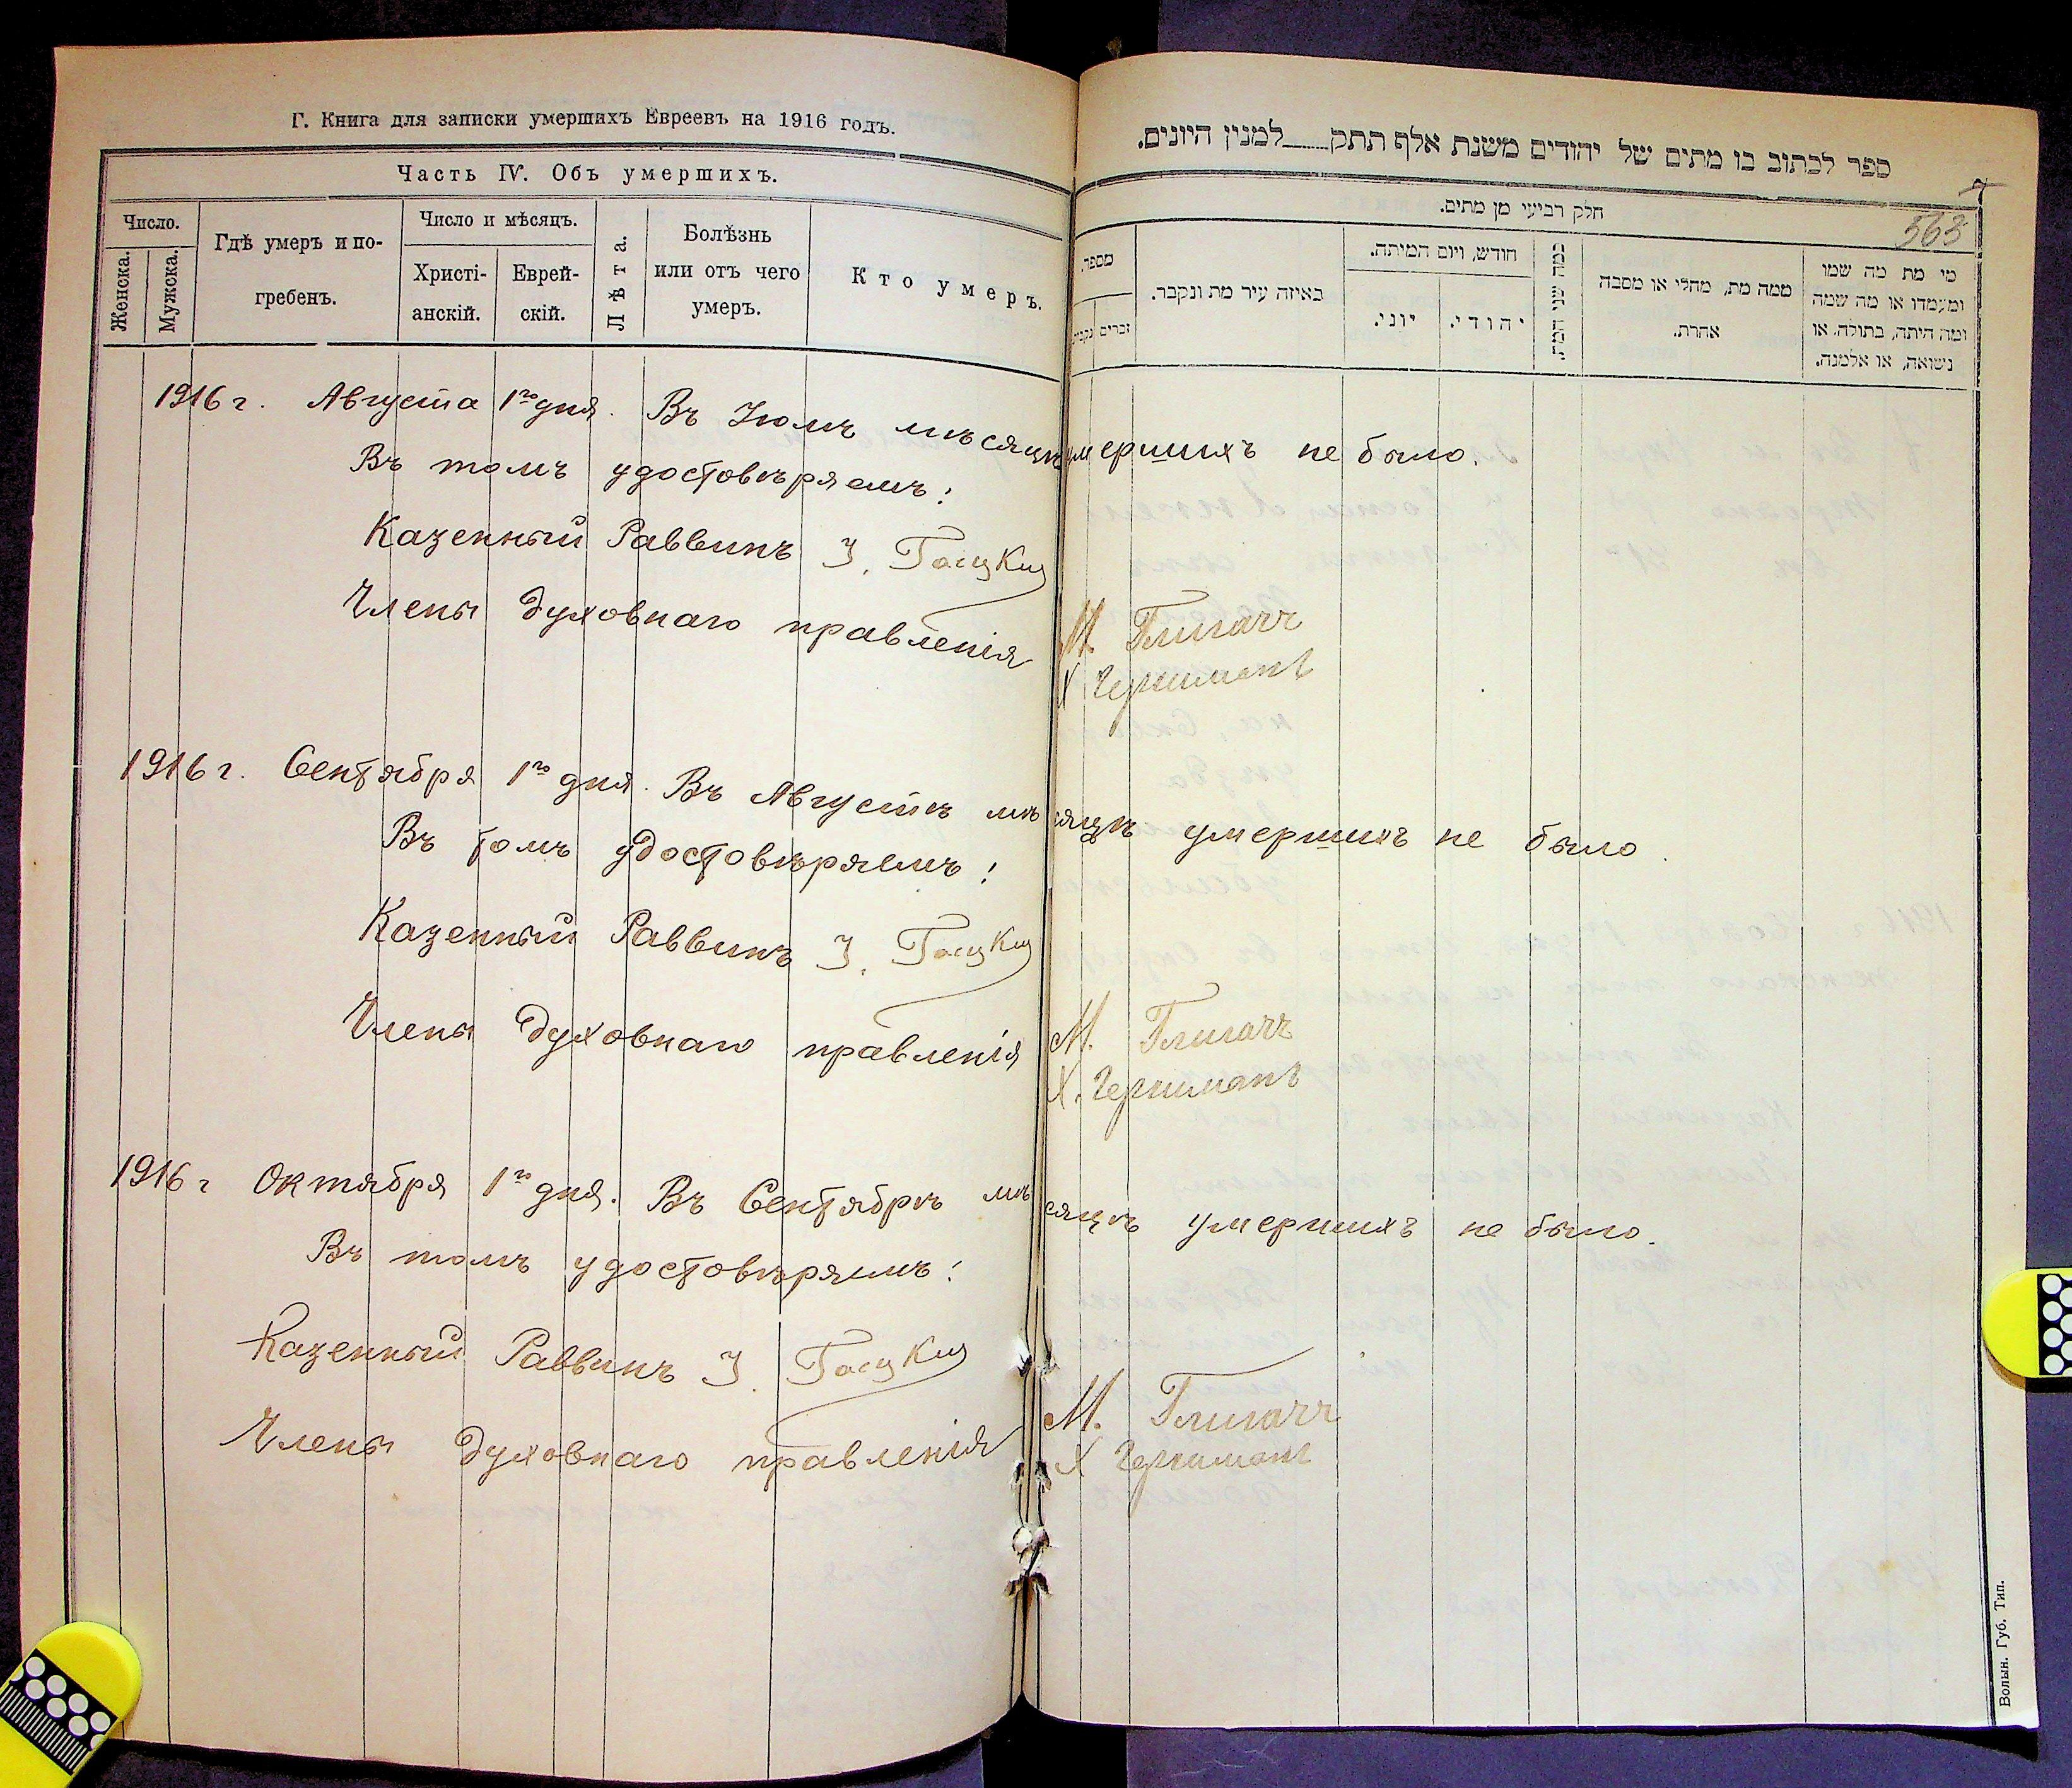 Г. Книга для записки умершихъ Евреевъ на 1916 годъ.
Часть IV. Объ умершихъ.
Число.
Женска.
Мужска.
Гдѣ умеръ и по-
гребенъ.
Число и мѣсяцъ.
Христі-
анскій.
Еврей-
скій.
Лѣта.
Болѣзнь
или отъ чего
умеръ.
Кто умеръ.
ספר לכתוב בו מתים של יהודים משנת אלף תתק למנין היונים.
חלק רביעי מן מתים.
563
מספר.
זכרים
נקבו
באיזה עיר מת ונקבר.
חודש, ויום המיתה.
יוני.
יהודי.
כמה שני המת.
ממה מת, מחלי או מסבה
אחרת.
מי מת מה שמו
ומעמדו או מה שמה
ומה היתה, בתולה, או
נשואה, או אלמנה.
1916 г. Августа 1го дня. Въ Іюлѣ мѣсяцѣ умершихъ не было.
Въ томъ удостовѣряемъ:
Казенный Раввинъ І.
Члены духовнаго правленія М.
Х
1916 г. Сентября 1го дня. Въ Августѣ мѣсяцѣ умершихъ не было.
Въ томъ удостовѣряемъ:
Казенный Раввинъ І.
Члены духовнаго правленія М.
Х.
1916 г Октября 1го дня. Въ Сентябрѣ мѣсяцѣ умершихъ не было.
Въ томъ удостовѣряемъ:
Казенный Раввинъ І.
Члены духовнаго правленія М.
Х
Волын. Губ. Тип.